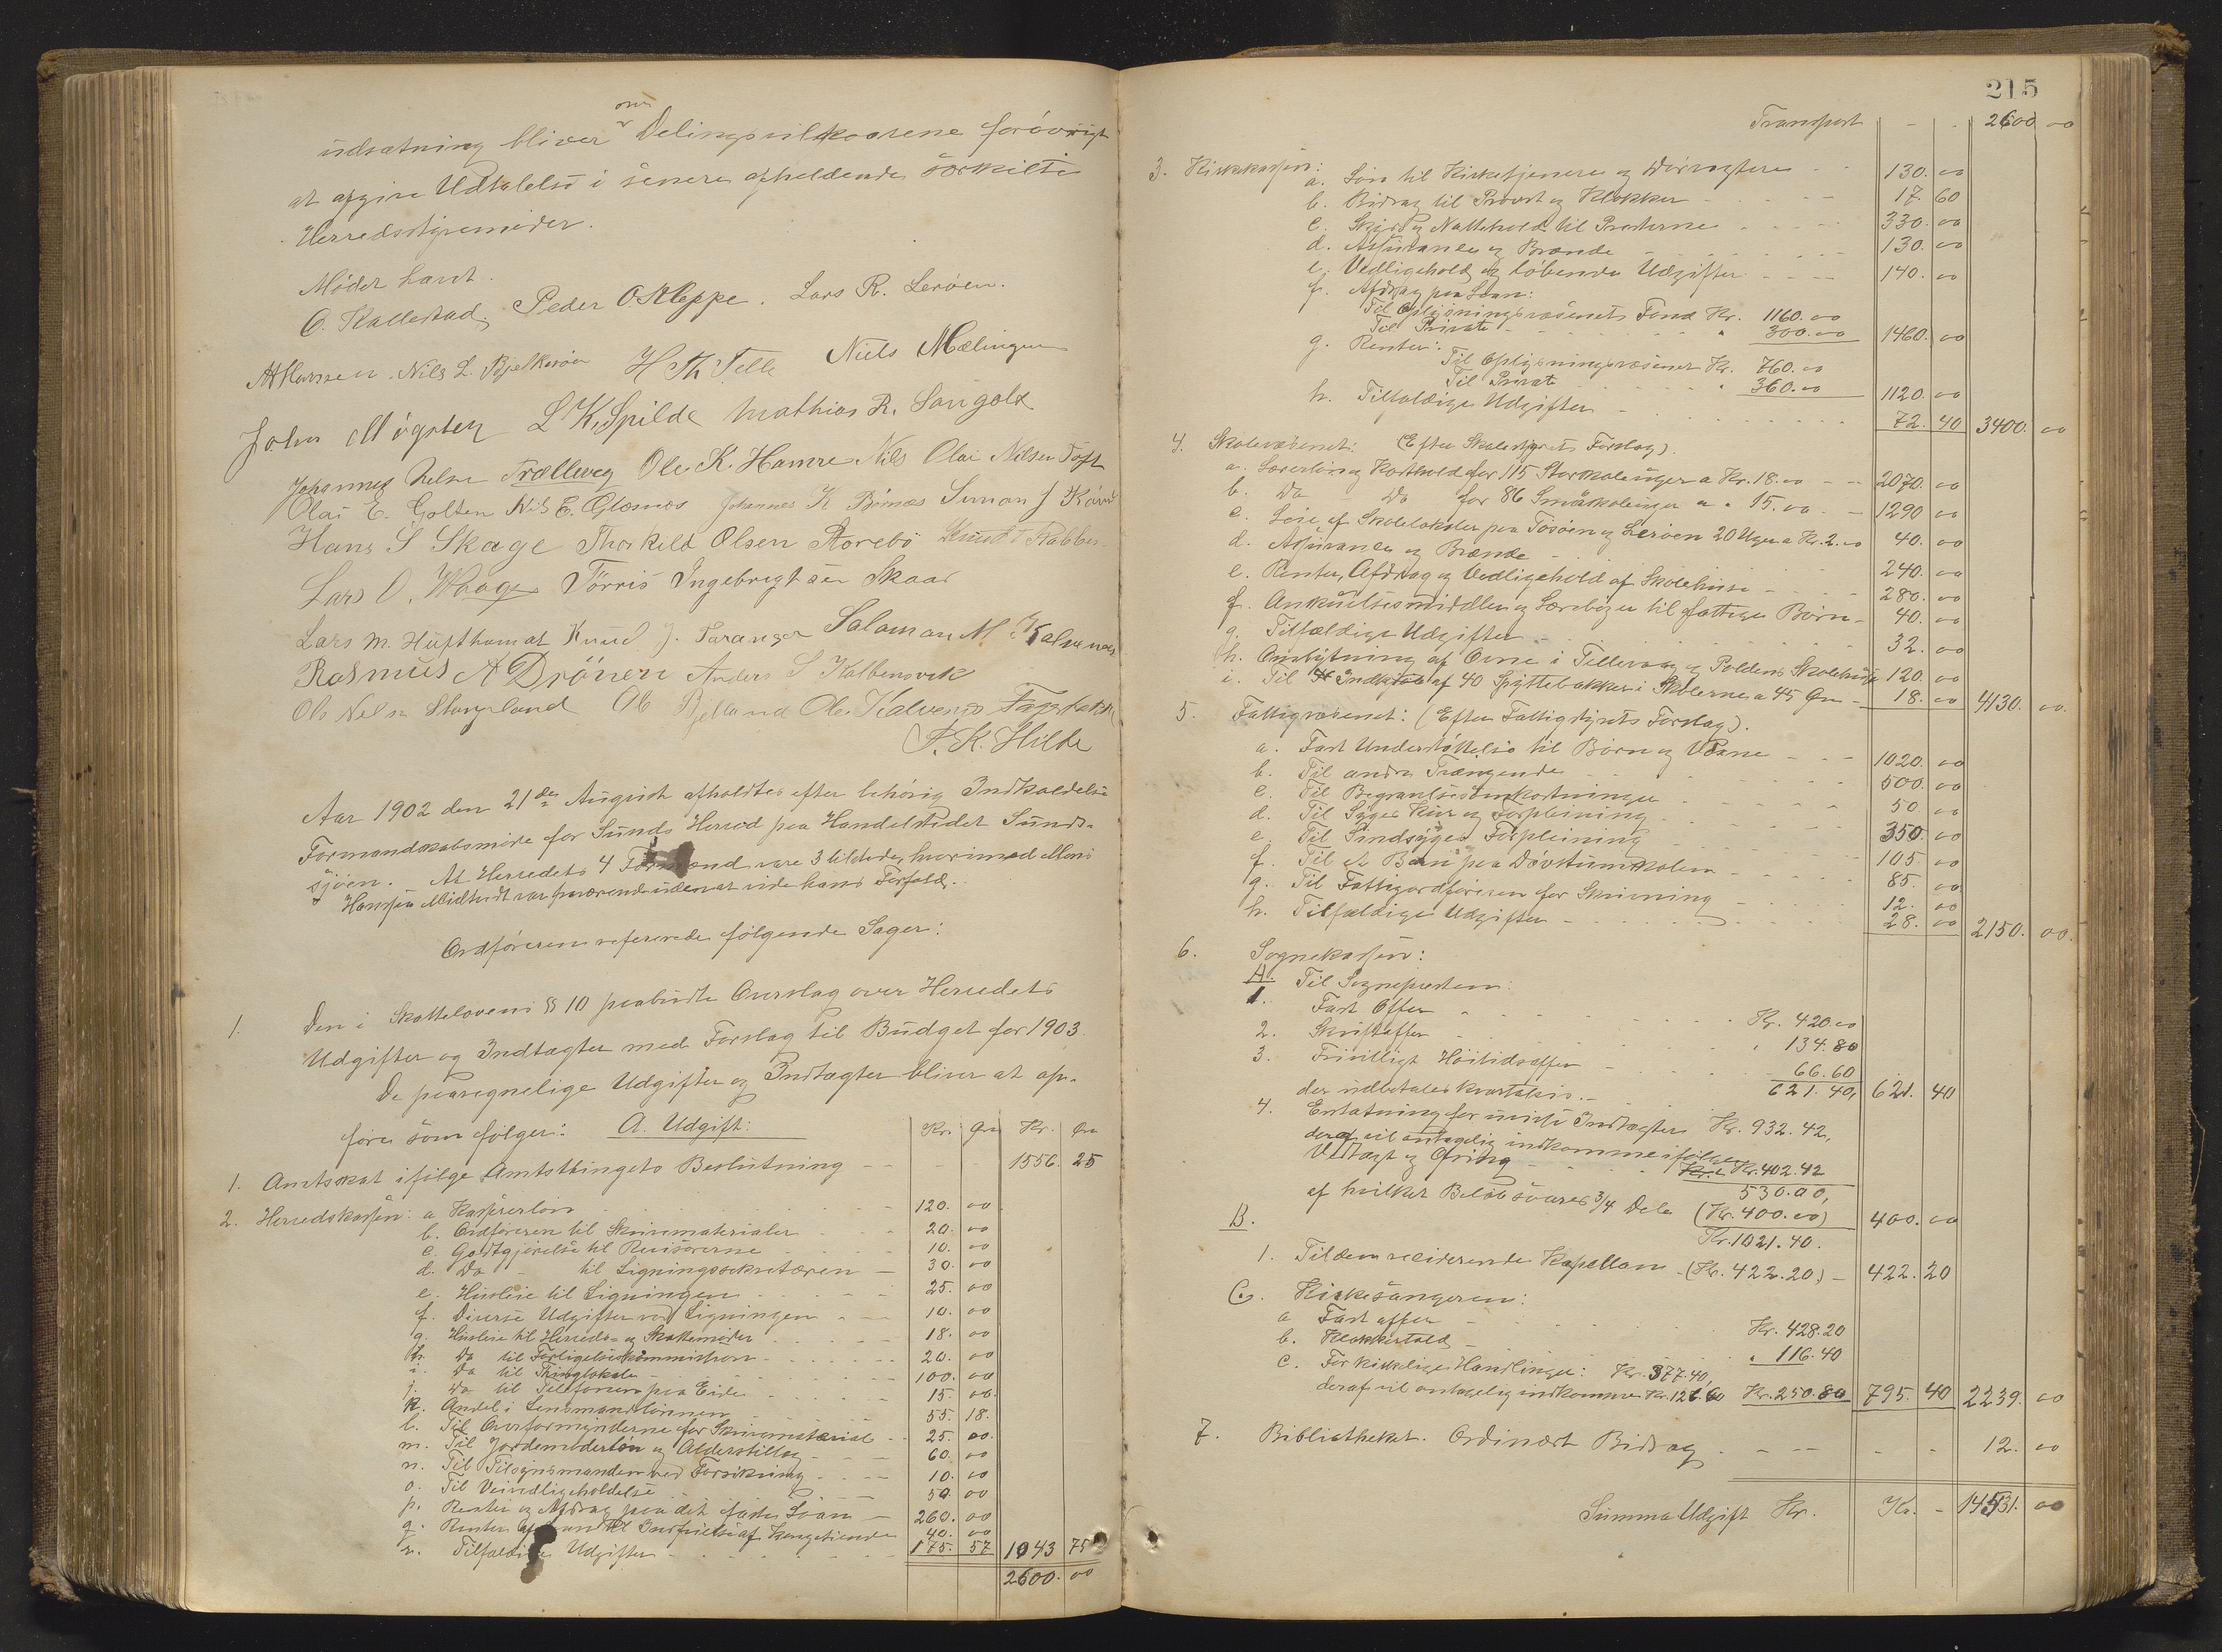 om
udsætning bliver Delingsvilkaarene forövrigt
at afgive Udtalelse i senere afholdende særskilte
Herredsstyremöder.
Mödet hævet.
O. Kallestad. Peder O. Kleppe. Lars R. Leröen.
Nils L. Bjelkeröen H Th Telle Niels Mælingen
John Mögster L K. Spilde Mathias R. Langøld
Johannes Trællevég Ole K. Hamre Nils Olai Nilsen Toft
Olai E. Golten Nils E. Glesnæs Johannes K Börnæs Simon J
Hans S Skage Thorkild Olsen Storebö Knud
Lars O. Waage Törris Ingebrigtsen Skaar
Lars M. Hufthamar Knud J. Toranger Salamon M Kalvenæs
Rasmus A Drönen Anders S Kolbensvik
Ole Nelsn Stangeland Ole Bjelland Ole Kalvenæs
A. K. Hilde
Aar 1902 den 21de August afholdtes efter behörig Indkaldelse
Formandskabsmöde for Sunds Herred paa Handelsstedet Sunds-
sjöen. Af Herredets 4 Formænd vare 3 tilstede, hvorimod Mons
Hanssen Midttvedt var fraværende uden at vide hans Forfald.
Ordföreren refererede fölgende Sager:
1. Den i Skattelovens § 10 paabudte Overslag over Herredets
Udgifter og Indtægter med Forslag til Budget for 1903.
De paaregnelige Udgifter og Indtægter bliver at op-
före som fölger: A. Udgift: Kr. Öre Kr. Öre
1. Amtsskat ifölge Amtsthingets Beslutning - - 1556. 25
2. Herredskassen: a Kasserlön 120. 00
b. Ordföreren til Skrivematerialer 20. 00
c. Godtgjörelse til Revisorerne 10. 00
d. Do til Ligningssekretæren 30. 00
e. Husleie til Ligningen 25. 00
f. Diverse Udgifter ved Ligningen 10. 00
g. Husleie til Herreds- og Skattemöder 18. 00
h. Do til Forligelseskommission 20. 00
i. Do til Thinglokale 100. 00
j. Do til Telefonen paa Eide 15. 00.
k. Andel i Lensmandslönnen 55. 18.
l. Til Overformynderne for Skrivematerial 25. 00.
m. Til Jordemoderlön og Alderstillæg 60. 00
n. Til Tilsynsmanden ved Forsikring 10. 00
o. Til Veivedligeholdelse 50. 00
p. Renter og Afdrag paa det faste Laan 260. 00
q. Renter af Laan til Indfrielse af Kongetiende 40. 00
r. Tilfældige Udgifter 175. 57 1043 75
2600. 00
215
Transport - - 2600. 00
3. Kirkekassen:
a. Lön til Kirketjenere og Dörvogtere 130. 00
b. Bidrag til Provst og Klokker 17. 60
c. Skyds og Nattehold til Presterne 330. 00
d. Assurance og Brænde 130. 00
e. Vedligehold og löbende Udgifter 140. 00
f. Afdrag paa Laan:
Til Oplysningsvæsenets Fond Kr. 1160. 00
Til Private " 300. 00 1460. 00
g. Renter:
Til Oplysningsvæsenet Kr. 760. 00
Til Private " 360. 00 1120. 00
h. Tilfældige Udgifter 72. 40 3400. 00
4. Skolevæsenet: (Efter Skolestyrets Forslag).
a. Lærerlön og Kosthold for 115 Storskoleuger a Kr. 18. 00 2070. 00
b. Do Do for 86 Småskoleuger a " 15. 00 1290 00
c. Leie af Skolelokaler paa Tösöen og Leröen 20 Uger a Kr. 2. 00 40. 00
d. Assurance og Brænde 240. 00
e. Renter, Afdrag og Vedligehold af Skolehuse 280. 00
f. Anskuelsesmiddler og Lærebøger til fattige Børn 40. 00
g. Tilfældige Udgifter 32. 00
h. Ombytning af Ovne i Tellevaag og Poldens Skolehuse 120. 00
i. Til Indkjöb af 40 Spyttebakker i Skolerne a 45 Öre 18. 00 4130. 00.
5. Fattigvæsenet: (Efter Fattigstyrets Forslag).
a. Fast Understöttelse til Börn og Voxne 1020. 00
b. Til andre Trængende 500. 00
c. Til Begravelsesomkostninger 50 00
d. Til Syges Kur og Forpleining 350. 00
e. Til Sindsyges Forpleining 105. 00
f. Til et Barn paa Dövstumskolen 85. 00
g. Til Fattigordföreren for Skrivning 12. 00
h. Tilfældige Udgifter 28. 00 2150. 00.
6. Sognekassen:
A. Til Sognepresten:
1. Fast Offer Kr. 420. 00
2. Skriftoffer " 134. 80
3. Frivilligt Höitidsoffer 66. 60
der udbetales kvartalsvis. 621. 40, 621. 40
4. Erstatning for mistede Indtægter Kr. 932. 42,
deraf vil antagelig indkomme ifölge
Vedtægt og Ofring Kr. 402. 42
530. 00,
af hvilket Belöb svares 3/4 Dele (Kr. 400. 00) 400. 00
Kr. 1021. 40.
B.
1. Til den residerende Kapellan (Kr. 422. 20) 422. 20
C. Kirkesangeren:
a Fast offer Kr. 428. 20
b. Klokkertold " 116. 40
c. For kirkelige Handlinger: Kr. 377. 40,
deraf vil antagelig indkomme Kr. 126. 60 Kr. 250. 80 795. 40 2239. 00
7. Bibliotheket. Ordinært Bidrag 12. 00
Summa Udgift Kr. Kr. - 14531. 00